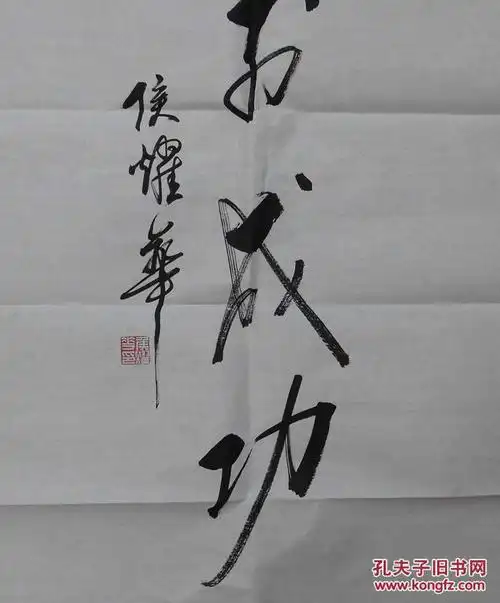 成功
侯耀華
孔夫子旧书网
www.kongfz.com